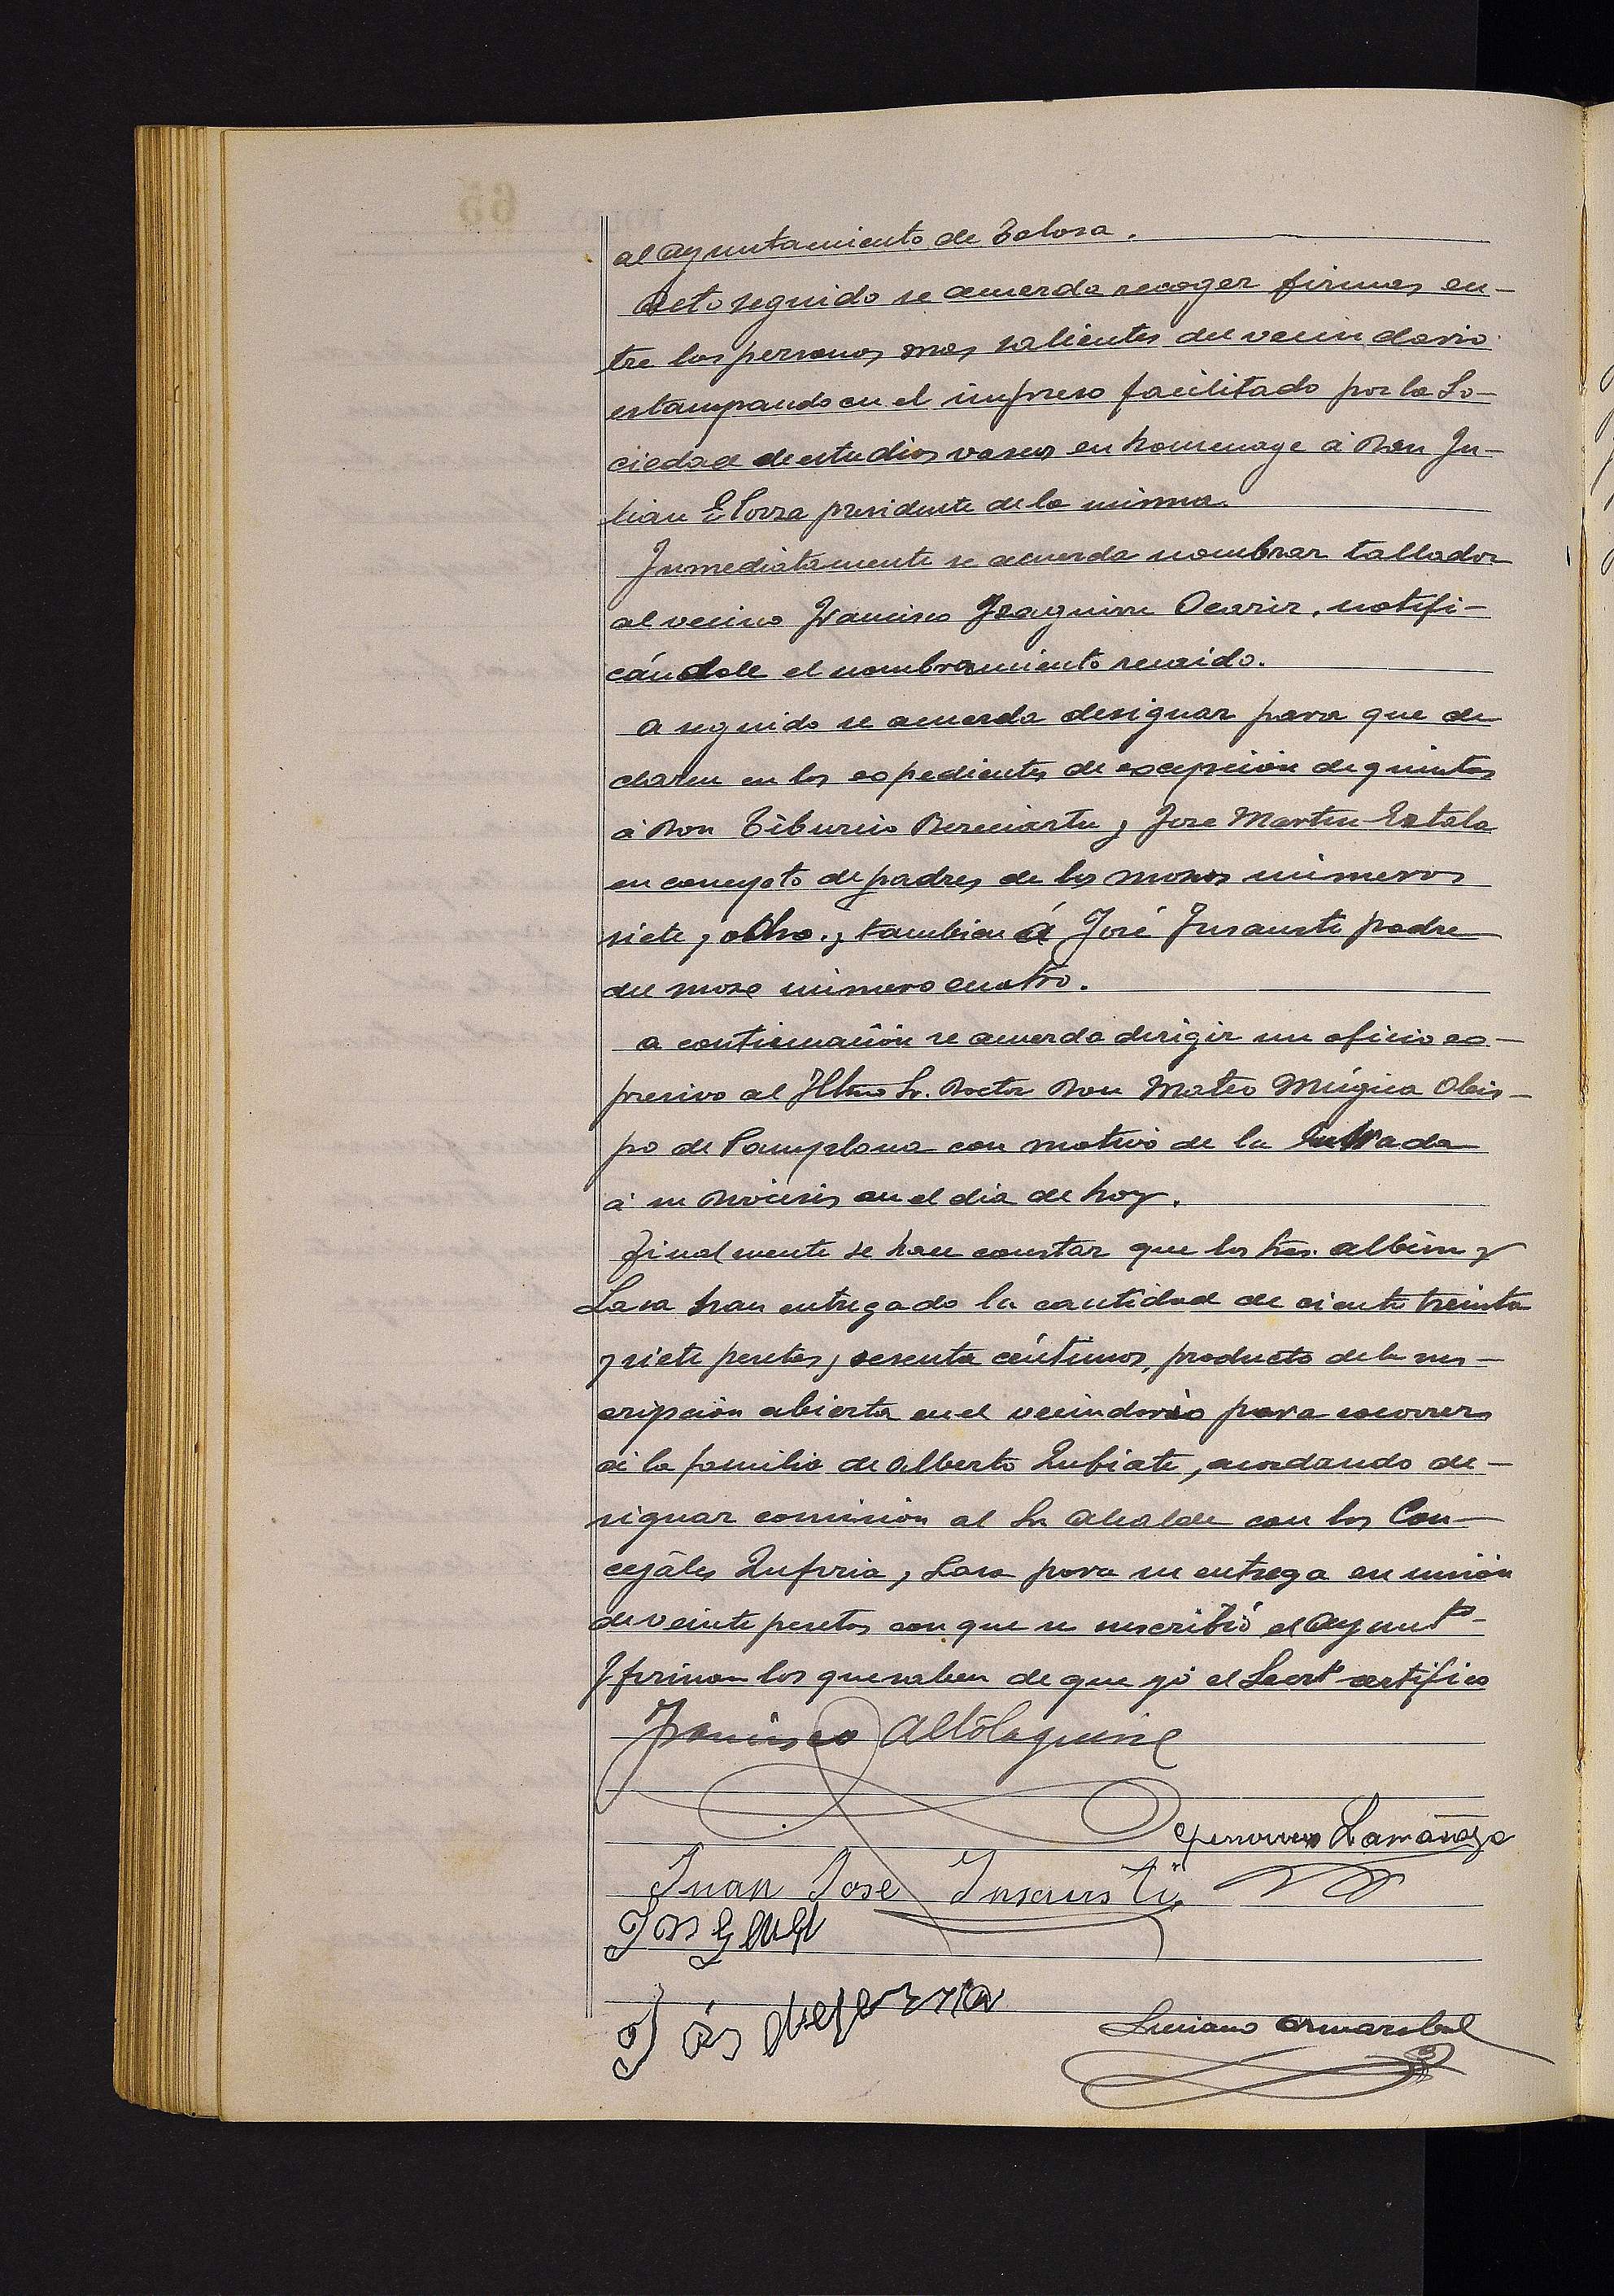 al Ayuntamiento de Tolosa.
Acto seguido se acuerda recoger firmas en-
tre las personas mas salientes del vecindario
estampando en el impreso facilitado por la So-
ciedad de estudios vascos en homenage á Don Ju-
lian Elorza presidente de la misma.
Inmediatamente se acuerda nombrar tallador
al vecino Francisco Izaguirre Ocariz, notifi-
cándole el nombramiento recaido.
A seguido se acuerda designar para que de
claren en los expedientes de excepción de quintas
á Don Tiburcio Bereciartu y Jose Martin Eztala
en concepto de padres de los mozos números
siete y ocho. y tambien á José Insausti padre
del mozo número cuatro.
A continuación se acuerda dirigir un oficio ex-
presivo al Iltmo Sr. Doctor Don Mateo Múgica Obis-
po de Pamplona con motivo de la entrada
á su Diócesis en el dia de hoy.
Finalmente se hace constar que los Sres. Albisu y
Lasa han entregado la cantidad de ciento treinta
y siete pesetas y sesenta céntimos, producto de la sus-
cripción abierta en el vecindario para socorrer
á la familia de Alberto Zubiate, acordando de-
signar comisión al Sr Alcalde con los Con-
cejáles Zufiria y Lasa para su entrega en unión
de veinte pesetas con que se suscribió el Ayuntº
Y firman los que saben de que yó el Secrtº certifico
Francisco Altolaguirre
Lamariaga
Juan Jose Insausti
Luciano Armaribal